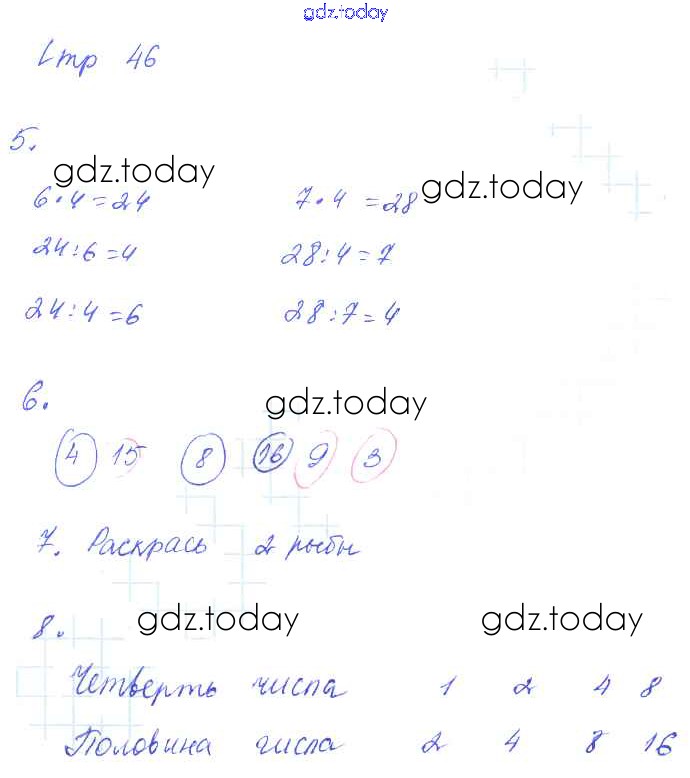 gdz.today
Стр 46
5.
gdz.today gdz.today
6·4=24 7·4=28
24:6=4 28:4=7
24:4=6 28:7=4
6. gdz.today
4 15 8 16 9 3
7. Раскрась 2 рыбы
8. gdz.today gdz.today
Четверть числа 1 2 4 8
Половина числа 2 4 8 16